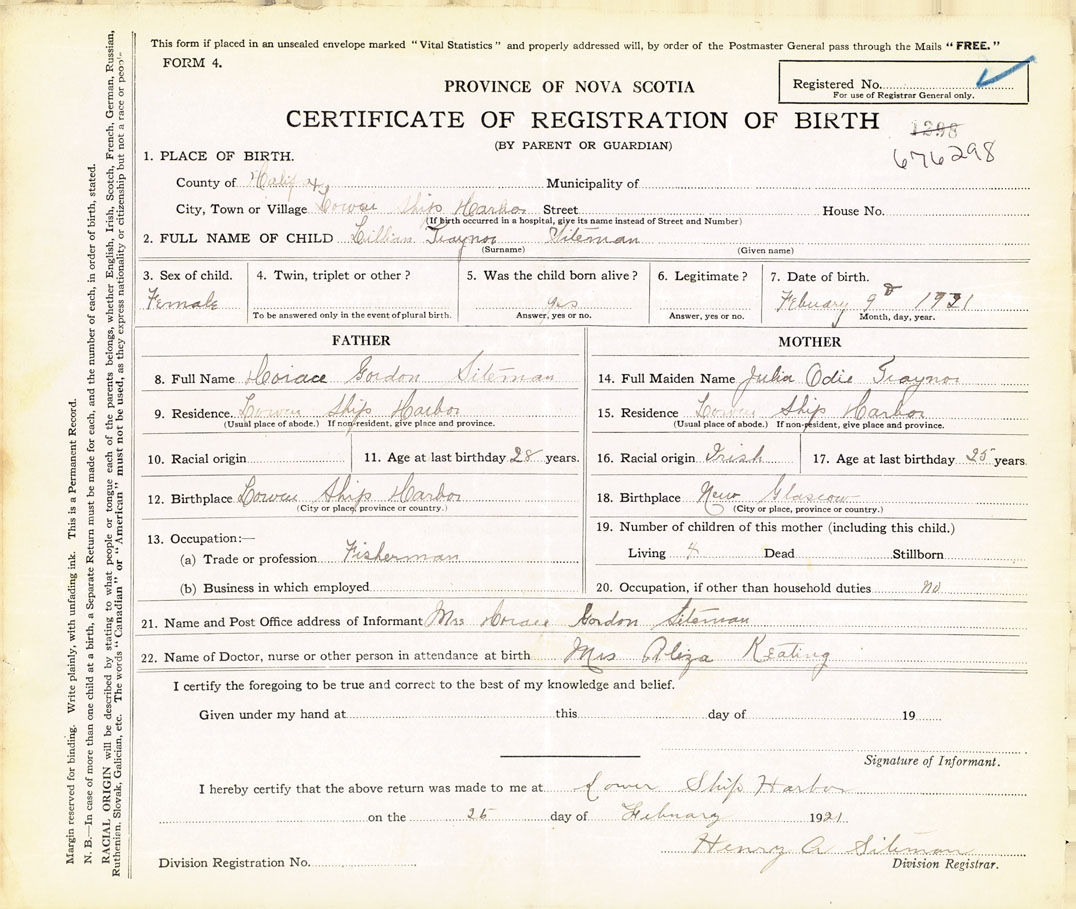 This form if placed in an unsealed envelope marked "Vital Statistics" and properly addressed will, by order of the Postmaster General pass through the Mails "FREE."
FORM 4.
Registered No.
For use of Registrar General only.
PROVINCE OF NOVA SCOTIA
CERTIFICATE OF REGISTRATION OF BIRTH
1298
(BY PARENT OR GUARDIAN)
676298
1. PLACE OF BIRTH.
County of Halifax Municipality of
City, Town or Village Lower Ship Harbor Street House No.
(If birth occurred in a hospital, give its name instead of Street and Number)
2. FULL NAME OF CHILD Lillian Traynor Siteman
(Surname) (Given name)
3. Sex of child. 4. Twin, triplet or other? 5. Was the child born alive? 6. Legitimate? 7. Date of birth.
Female yes Febuary 9 1921
To be answered only in the event of plural birth. Answer, yes or no. Answer, yes or no. Month, day, year.
FATHER
8. Full Name Horace Gordon Siteman
9. Residence. Lower Ship Harbor
(Usual place of abode.) If non-resident, give place and province.
10. Racial origin 11. Age at last birthday 28 years.
12. Birthplace Lower Ship Harbor
(City or place, province or country.)
13. Occupation:—
(a) Trade or profession Fisherman
(b) Business in which employed
MOTHER
14. Full Maiden Name Julia Odie Traynor
15. Residence Lower Ship Harbor
(Usual place of abode.) If non-resident, give place and province.
16. Racial origin Irish 17. Age at last birthday 25 years
18. Birthplace New Glascow
(City or place, province or country.)
19. Number of children of this mother (including this child.)
Living 4 Dead Stillborn
20. Occupation, if other than household duties no
21. Name and Post Office address of Informant Mrs Horace Gordon Siteman
22. Name of Doctor, nurse or other person in attendance at birth Mrs Aliza Keating
I certify the foregoing to be true and correct to the best of my knowledge and belief.
Given under my hand at this day of 19
Signature of Informant.
I hereby certify that the above return was made to me at Lower Ship Harbor
on the 25 day of Febuary 1921.
Henry A Siteman
Division Registration No. Division Registrar.
Margin reserved for binding. Write plainly, with unfading ink. This is a Permanent Record.
N. B.—In case of more than one child at a birth, a Separate Return must be made for each, and the number of each, in order of birth, stated.
RACIAL ORIGIN will be described by stating to what people or tongue each of the parents belongs, whether English, Irish, Scotch, French, German, Russian,
Ruthenian, Slovak, Galician, etc. The words "Canadian" or "American" must not be used, as they express nationality or citizenship but not a race or people